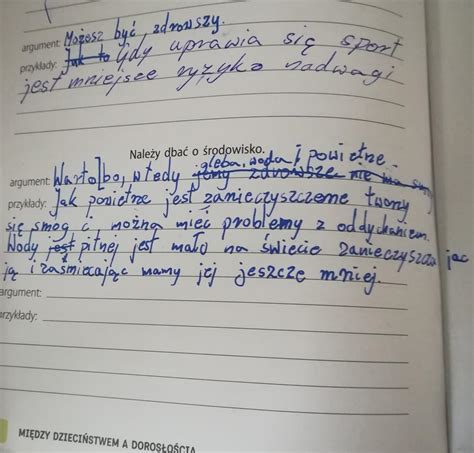 argument: Możesz być, zdrowszy.
przykłady: Jak to Gdy uprawia się sport
jest mniejsce ryzyko nadwagi
Należy dbać o środowisko.
gleba, woda i powietrze.
argument: Warto[bo, wtedy jemy zdrowsze nie ma
przykłady: Jak powietrze jest zanieczyszczeme tworzy
się smog i, można mieć problemy z oddychaniem.
Wody jest pitnej jest mało na świecie zanieczyszcza jac
ją i zaśmiecając mamy jej jeszcze mniej.
argument:
przykłady:
MIĘDZY DZIECIŃSTWEM A DOROSŁOŚCIĄ